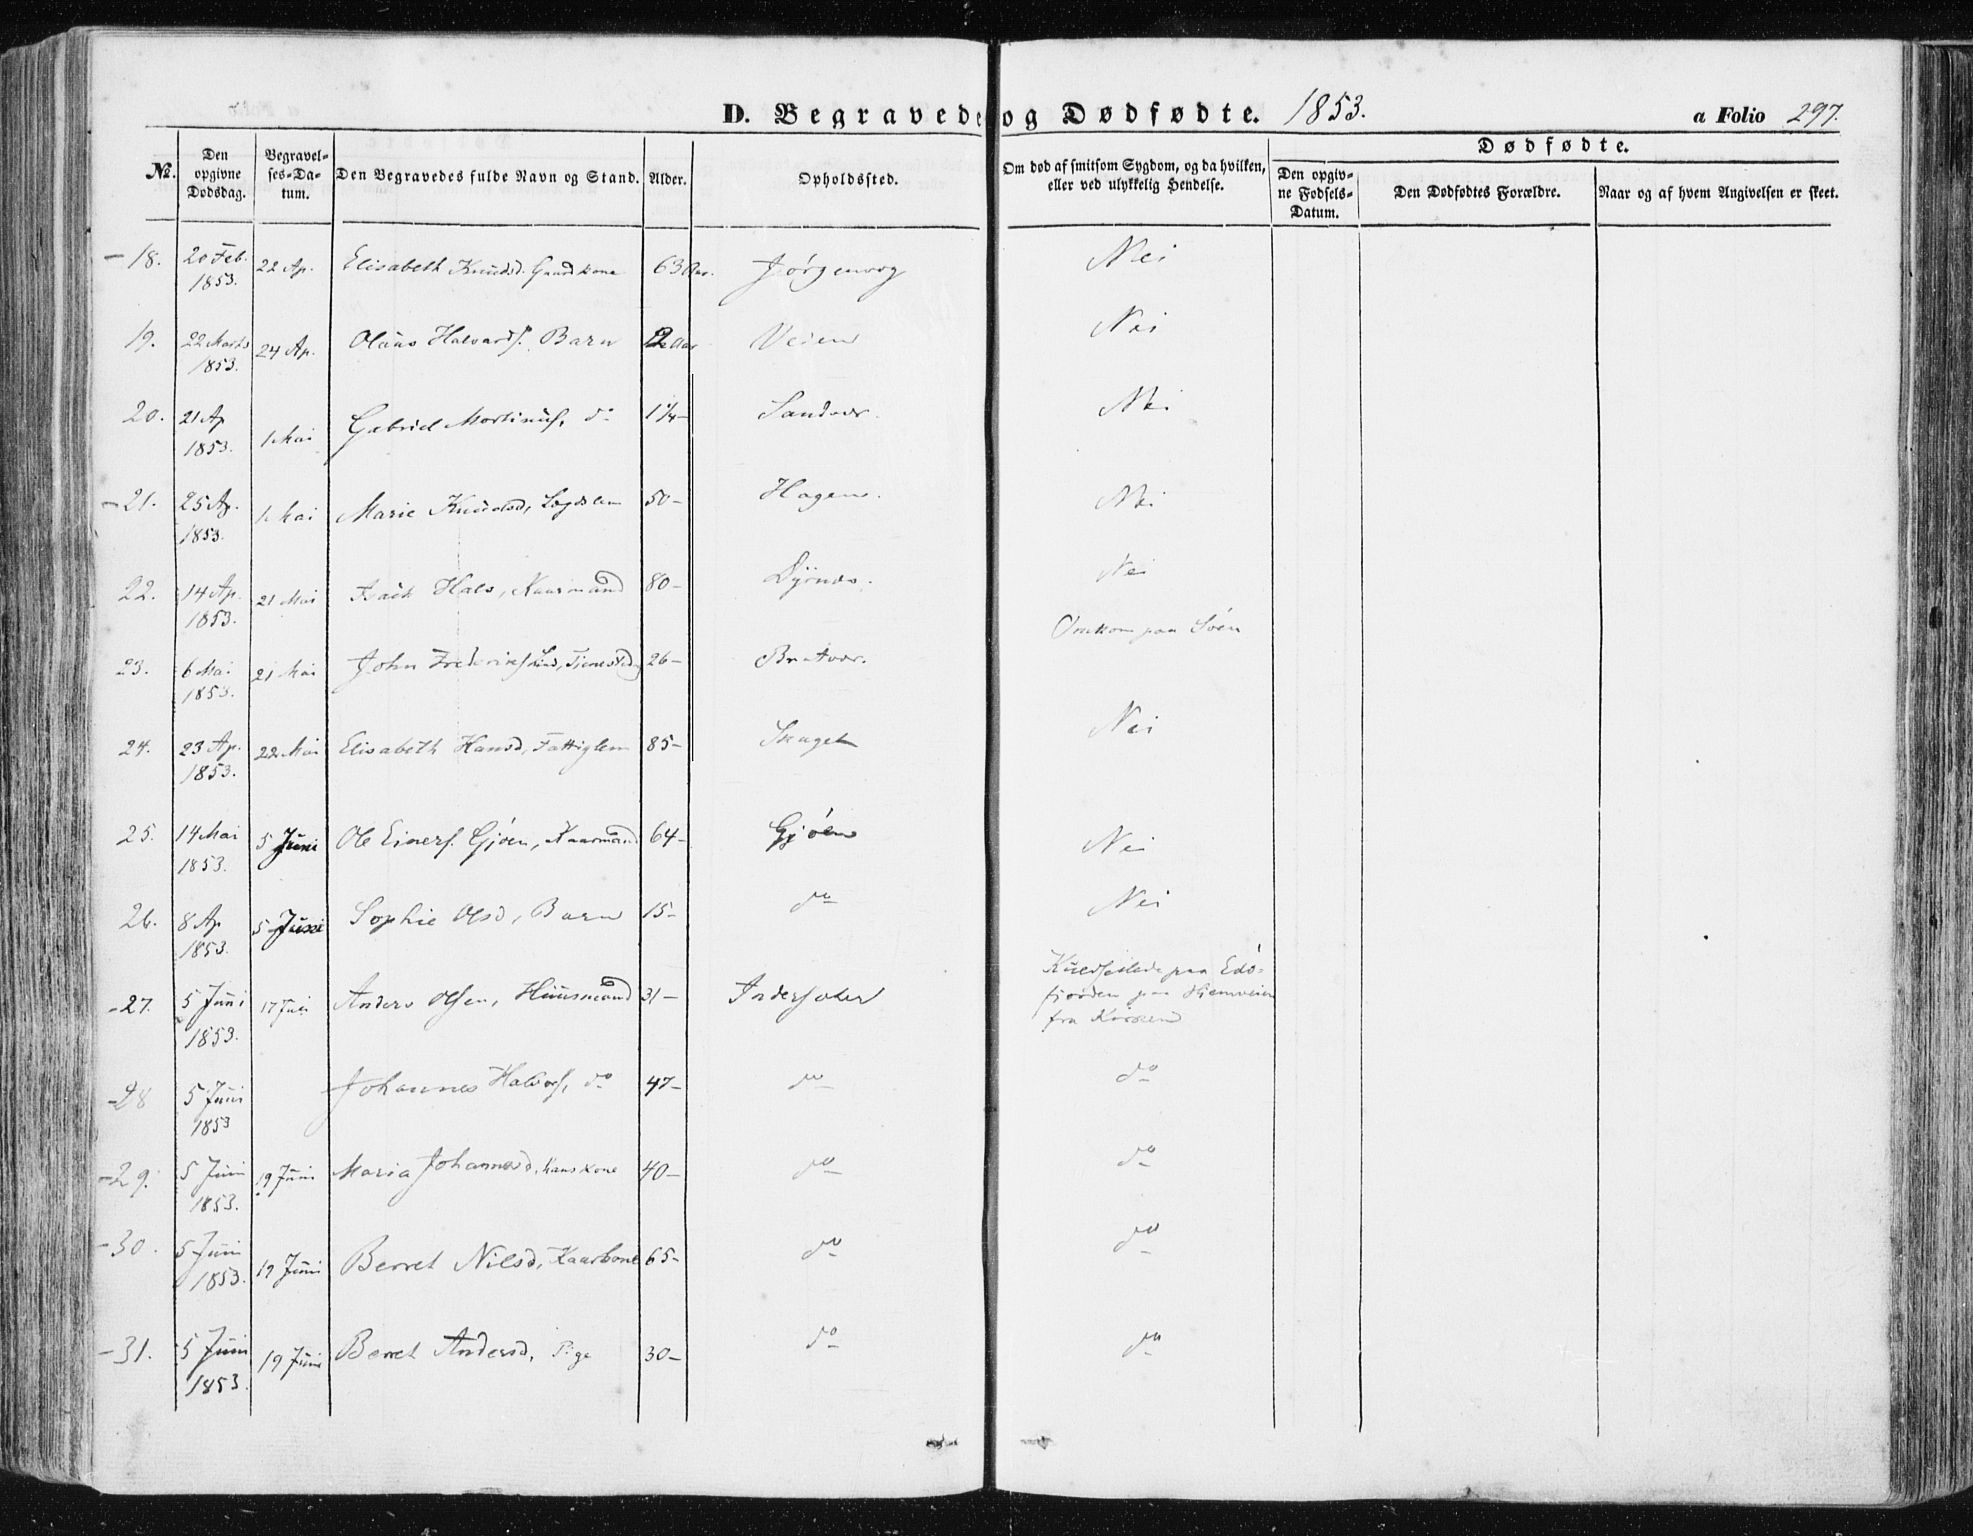 D. Begravede og Dødfødte. 1853. a Folio 297.
Dødfødte.
No. Den opgivne Dødsdag. Begravelses-Datum. Den Begravedes fulde Navn og Stand. Alder. Opholdssted. Om død af smitsom Sygdom, og da hvilken, eller ved ulykkelig Hendelse. Den opgivne Fødsels-Datum. Den Dødfødtes Forældre. Naar og af hvem Angivelsen er skeet.
-18. 20 Feb. 1853. 22 Ap. Elisabeth Knudsd. Gaardkone 63 Aar. Jørgenvog Nei
19. 22 Marts 1853. 24 Ap. Olaus Halvards. Barn 2 Aar Veien Nei
20. 21 Ap 1853. 1 Mai Gabriel Martinus, do 1 1/4- Sandvær. Nei
-21. 25 Ap. 1853. 1 Mai Marie Knudsd, Lægdslem 50- Hagen. Nei
22. 14 Ap. 1853. 21 Mai Isach Hals, Kaarmand 80- Dyrnes. Nei
23. 6 Mai 1853. 21 Mai John Frederiks Lind, 26- Bratvær. Omkom paa Søen
24. 23 Ap. 1853. 22 Mai Elisabeth Hansd, Fattiglem 85- Skaget Nei
25. 14 Mai 1853. 5 Juni Ole Einers. Gjøen, Kaarmand 64- Gjøen Nei
26. 8 Ap 1853. 5 Juni Sophie Olsd, Barn 15- do Nei
-27. 5 Juni 1853. 17 Juni Anders Olsen, Huusmand 31- Indersaker Kuldseilede paa Edø-
fjorden paa Hjemveien
fra Kirken
-28 5 Juni 1853 Johannes Halvors, do 47- do do
-29. 5 Juni 1853. 19 Juni Maria Johannesd, hans Kone 40- do do
-30. 5 Juni 1853. 19 Juni Berret Nilsd, Kaarkone 65- do do
-31. 5 Juni 1853. 19 Juni Berret Andersd, Pige 30- do do